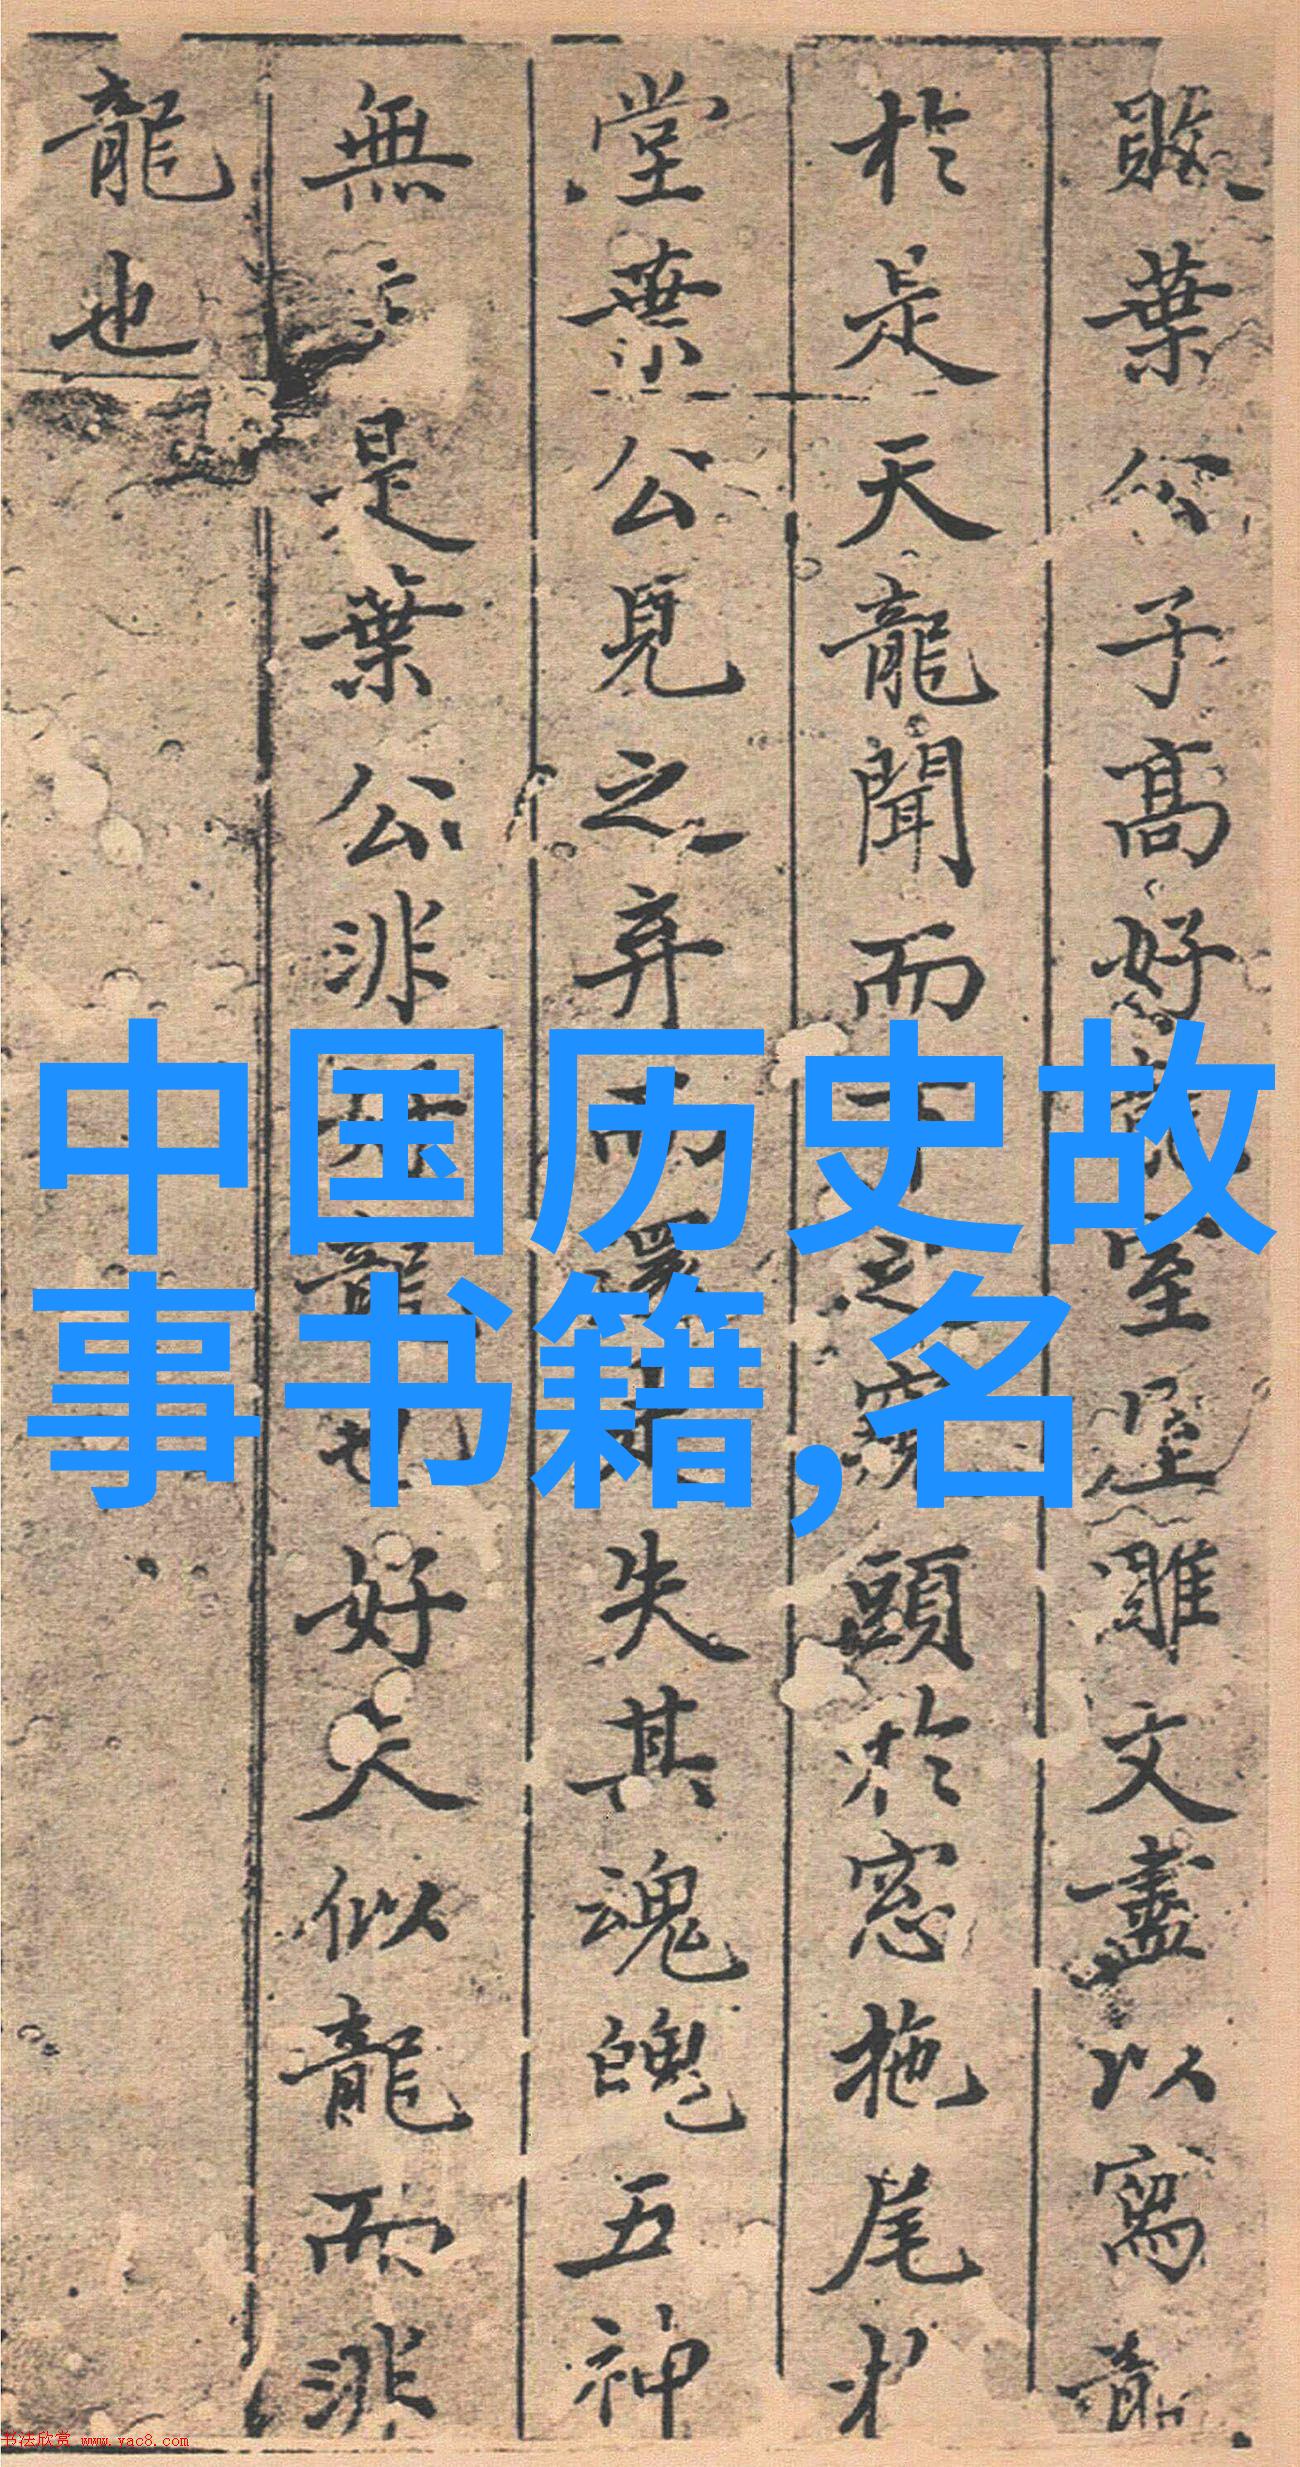 敗葉公子高好龍室屋雕文盡以寫龍
於是天龍聞而下之窺頭於窓拖尾於
堂葉公見之弃而還走失其魂魄五神
無主是葉公非好龍也好夫似龍而非
龍也
中国历史故
事书籍,名
书法欣赏 www.yac8.com